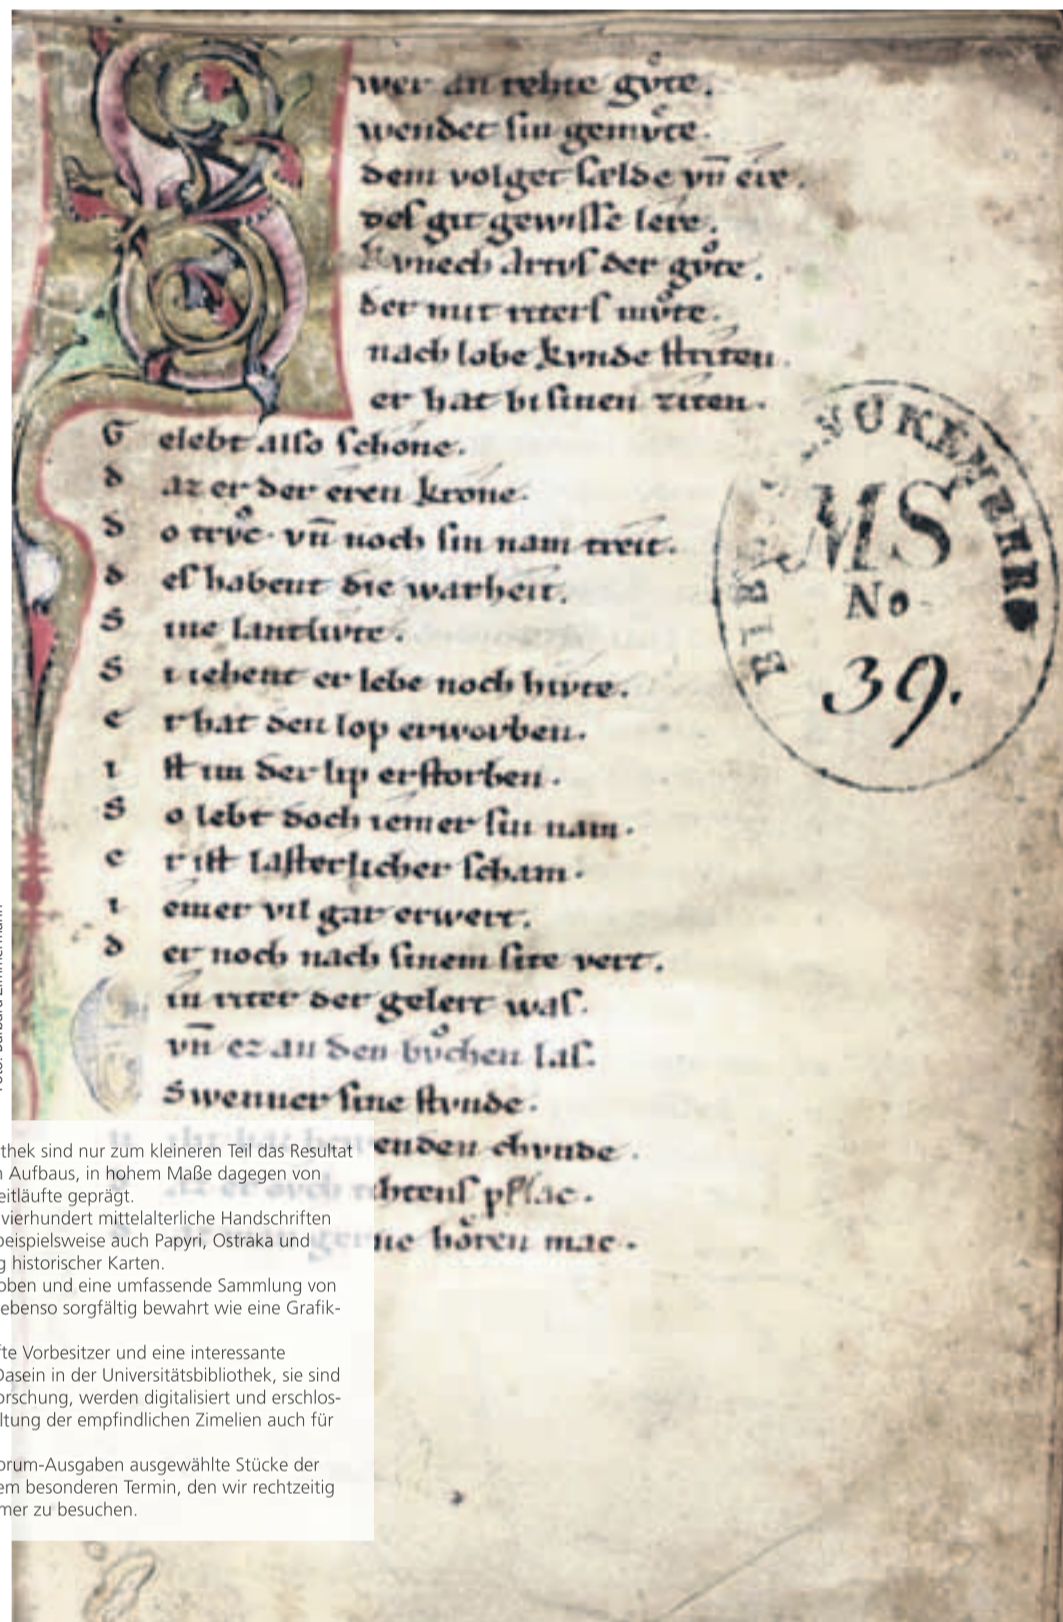 Swer an rehte gvͦte.
wendet sin gemvͦte.
dem volget sælde vn̄ ere.
des git gewisse lere.
kvnech Artvs der gvͦte.
der mit riters mvͦte.
nach lobe kvnde striten.
er hat bi sinen ziten.
Gelebt also schone.
daz er der eren krone.
do trvͦc. vn̄ noch sin nam treit.
des habent die warheit.
Sine lantlivte.
Si iehent er lebe noch hivte.
er hat den lop erworben.
ist im der lip erstorben.
So lebt doch iemer sin nam.
er ist lasterlicher scham.
iemer vil gar erwert.
der noch nach sinem site vert.
Ein riter der gelert was.
vn̄ ez an den bvͦchen las.
Swenner sine stvnde.
enden chvnde.
htens pflac.
gerne hoͤren mac.
MS
No
39.
thek sind nur zum kleineren Teil das Resultat
n Aufbaus, in hohem Maße dagegen von
eitläufte geprägt.
vierhundert mittelalterliche Handschriften
beispielsweise auch Papyri, Ostraka und
g historischer Karten.
oben und eine umfassende Sammlung von
ebenso sorgfältig bewahrt wie eine Grafik-
fte Vorbesitzer und eine interessante
Dasein in der Universitätsbibliothek, sie sind
orschung, werden digitalisiert und erschlos-
ltung der empfindlichen Zimelien auch für
orum-Ausgaben ausgewählte Stücke der
em besonderen Termin, den wir rechtzeitig
mer zu besuchen.